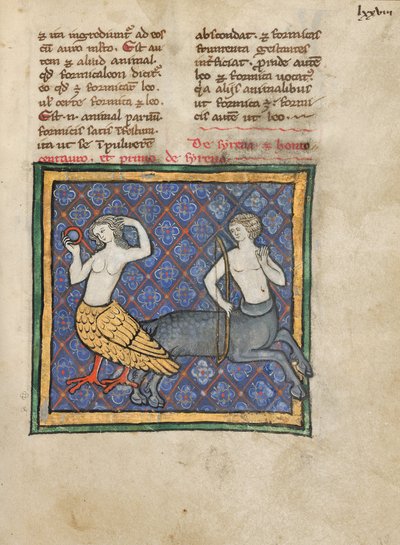 lxxviii
⁊ ita ingrediunt᷑ ad eos
cū auro mixto. Est au
tem ⁊ aliud animal.
qd formicaleon dicit᷑.
eo qd ⁊ formicaꝝ leo.
ul' certe formica ⁊ leo.
Est .n. animal paruū
formicis satis ī festum.
ita ut se ī puluere
abscondat. ⁊ formicas
frumenta gestantes
int̄ficiat. proinde autē
leo ⁊ formica uocat᷑.
q̄ alijs animalibus
ut formica ē: formi
cis autē ut leo.
De syrena ⁊ hono
centauro, et primo de syrena